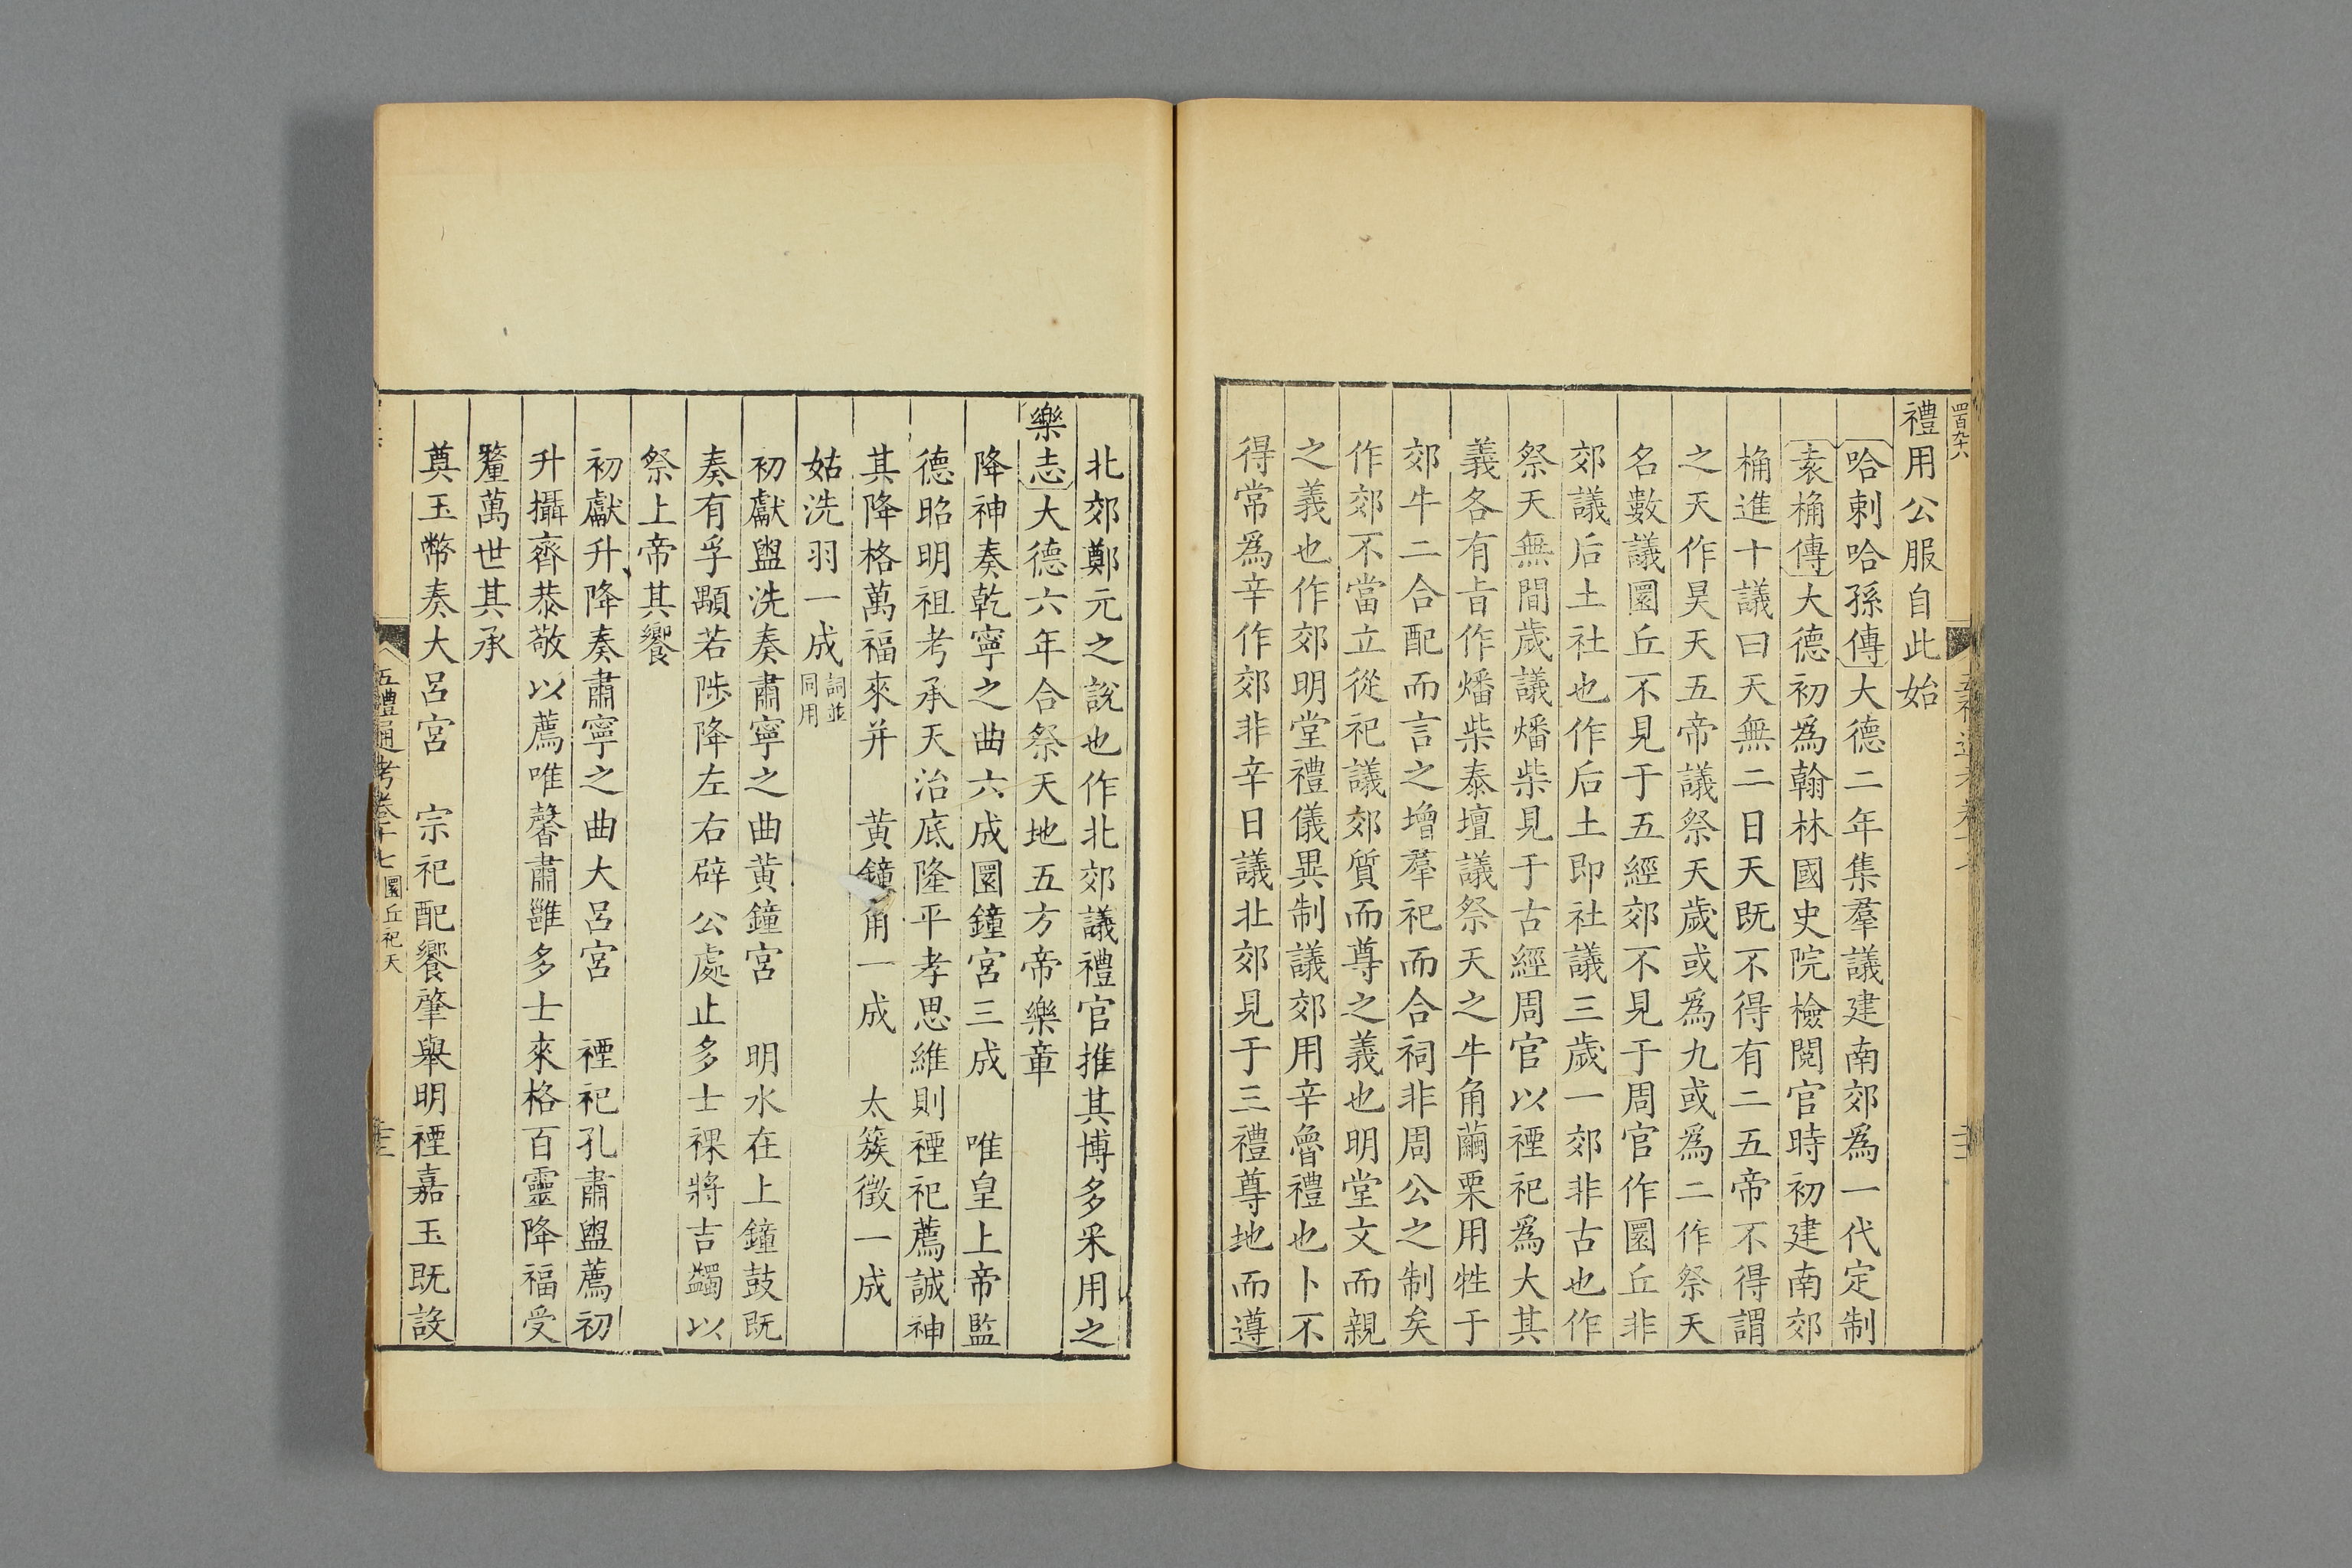 禮用公服自此始
哈剌哈孫傳大德二年集羣議建南郊爲一代定制
袁桷傳大德初爲翰林國史院檢閱官時初建南郊
桷進十議曰天無二日天既不得有二五帝不得謂
之天作昊天五帝議祭天歲或爲九或爲二作祭天
名數議圜丘不見于五經郊不見于周官作圜丘非
郊議后土社也作后土即社議三歲一郊非古也作
祭天無間歲議燔柴見于古經周官以禋祀爲大其
義各有旨作燔柴泰壇議祭天之牛角繭栗用牲于
郊牛二合配而言之增羣祀而合祠非周公之制矣
作郊不當立從祀議郊質而尊之義也明堂文而親
之義也作郊明堂禮儀異制議郊用辛魯禮也卜不
得常爲辛作郊非辛日議北郊見于三禮尊地而遵
北郊鄭元之說也作北郊議禮官推其博多采用之
樂志大德六年合祭天地五方帝樂章
降神奏乾寧之曲六成圜鐘宮三成　唯皇上帝監
德昭明祖考承天治底隆平孝思維則禋祀薦誠神
其降格萬福來并　黃鐘角一成　太簇徵一成
姑洗羽一成詞並同用
初獻盥洗奏肅寧之曲黃鐘宮　明水在上鐘鼓既
奏有孚顒若陟降左右辟公處止多士祼將吉蠲以
祭上帝其饗
初獻升降奏肅寧之曲大呂宮　禋祀孔肅盥薦初
升攝齊恭敬以薦唯馨肅雝多士來格百靈降福受
釐萬世其承
奠玉幣奏大呂宮　宗祀配饗肇舉明禋嘉玉既設
五禮通考卷十七　圜丘祀天